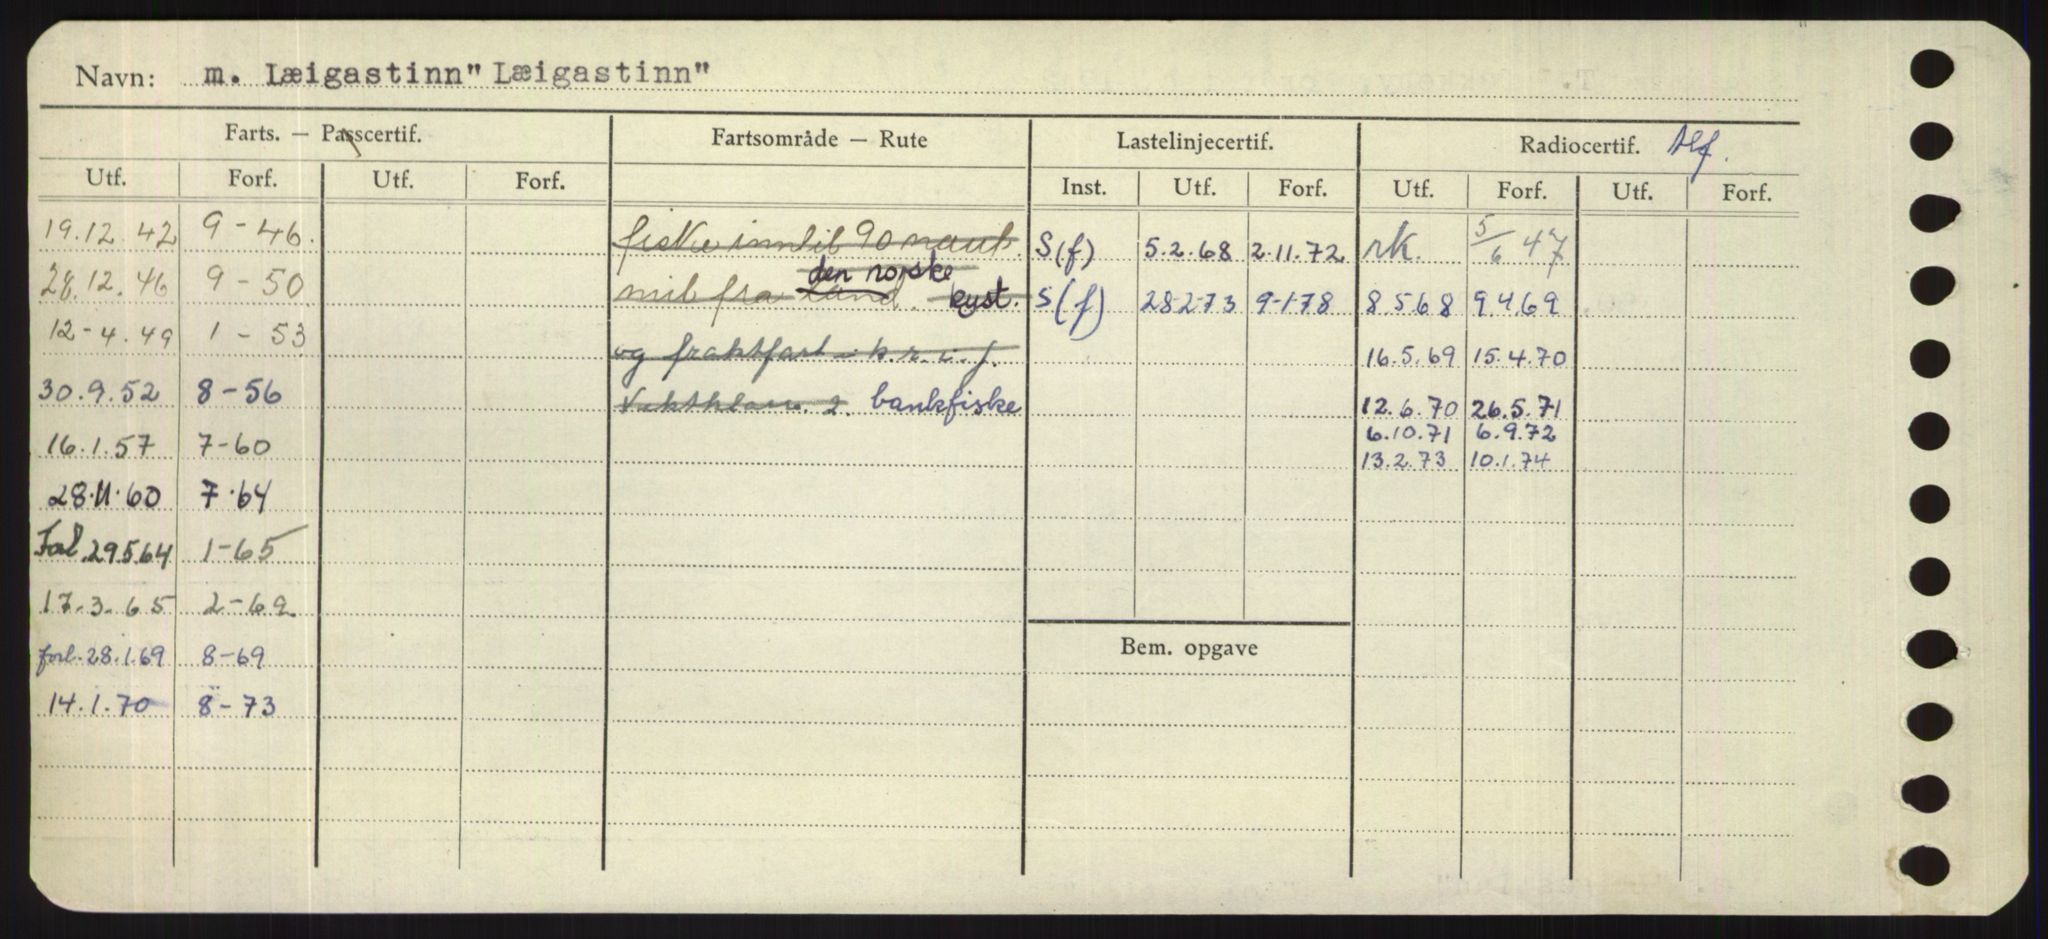 Navn: m. Læigastinn" Læigastinn"
Farts. — Passcertif. Fartsområde — Rute Lastelinjecertif. Radiocertif. tlf.
Utf. Forf. Utf. Forf. Inst. Utf. Forf. Utf. Forf. Utf. Forf.
19.12.42 9-46. fiske inntil 90 naut. S(f) 5.2.68 2.11.72 rk. 5/6 47
28.12.46 9-50 mil fra land. den norske kyst. S(f) 28-2-73 9-1-78 8.5.68 9.4.69
12-4.49 1-53 og fraktfart i k.r.i.f. 16.5.69 15.4.70
30.9.52 8-56 2. bankfiske 12.6.70 26.5.71
6.10.71 6.9.72
16.1.57 7-60 13.2.73 10.1.74
28.11.60 7.64
Forl. 29.5.64 1-65
17.3.65 2-69
Bem. opgave
forl. 28.1.69 8-69
14.1.70 8-73